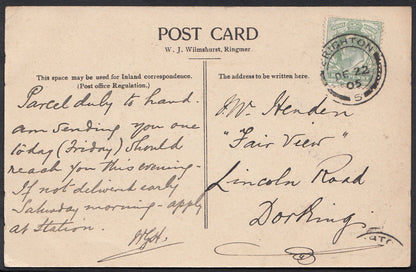 POST CARD
W. J. Wilmshurst, Ringmer.
This space may be used for Inland correspondence.
(Post office Regulation.)
Parcel duly to hand.
am sending you one
today (Friday) Should
reach you this evening-
If not delivered early
Saturday morning - apply
at station.
The address to be written here.
BRIGHTON
DE 22
05
S
Henden
"Fair View"
Lincoln Road
Dorking